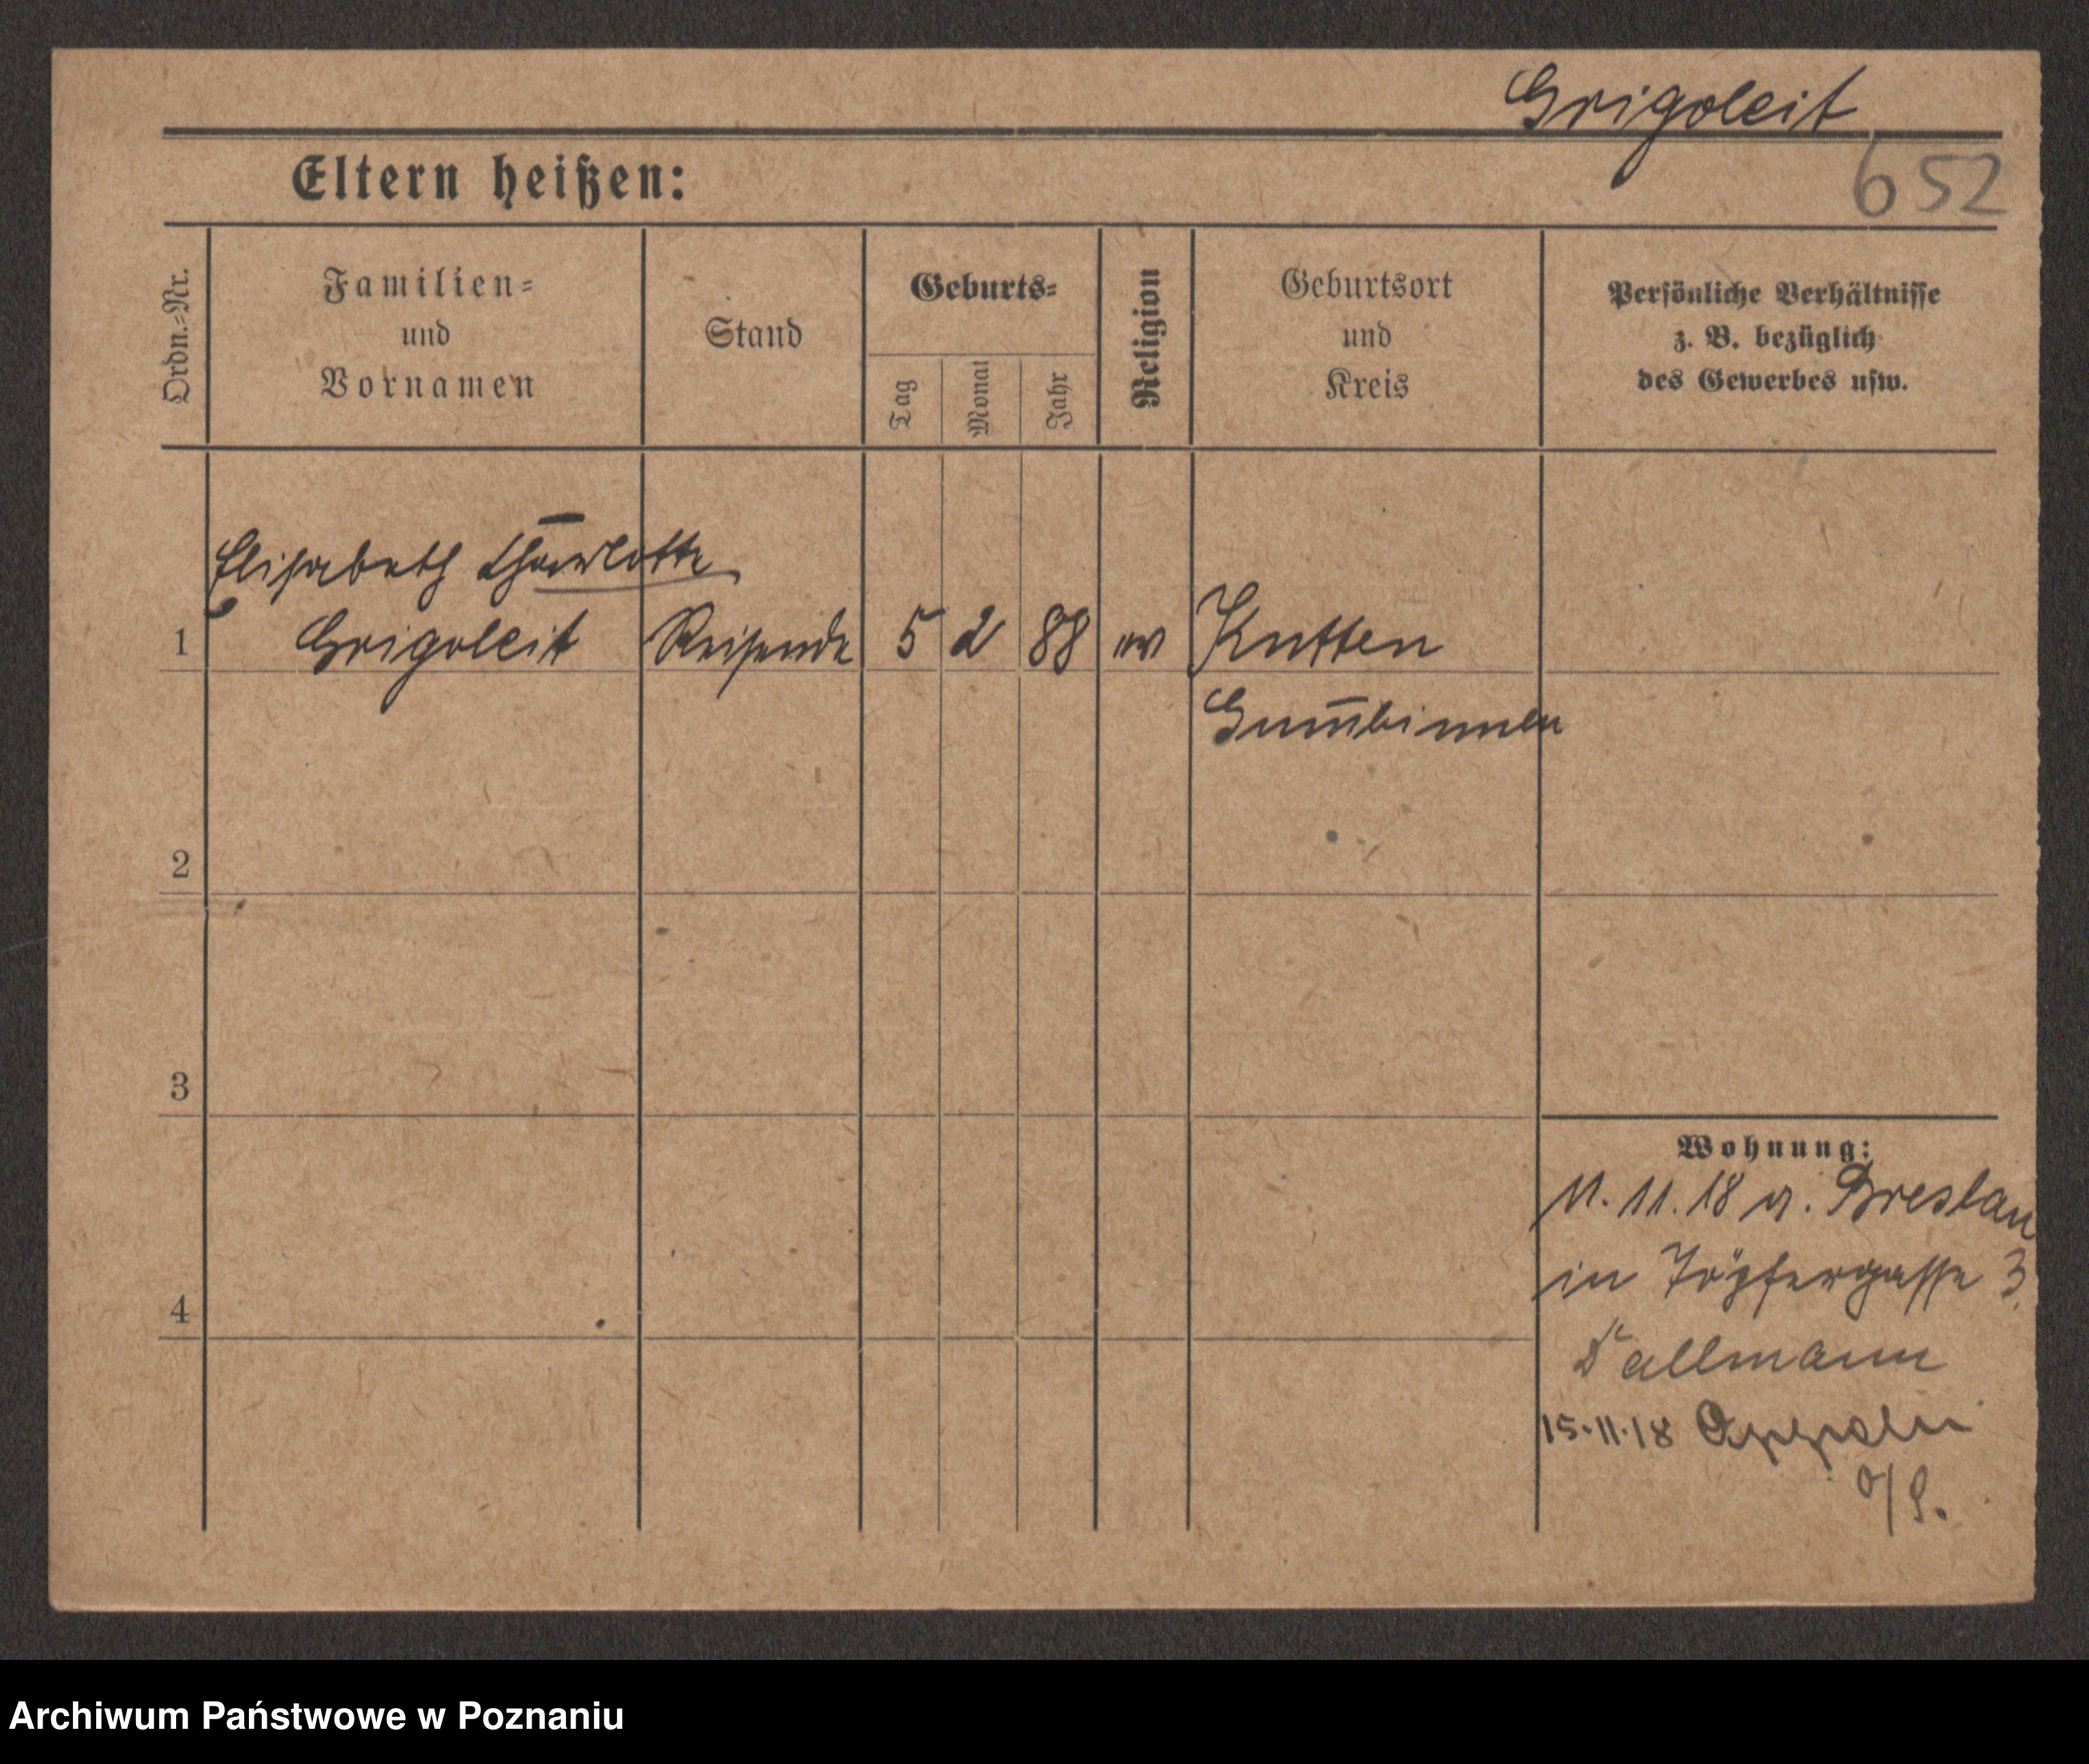 Grigoleit
652
Eltern heißen:
Ordn.=Nr.
Familien=
und
Vornamen
Stand
Geburts=
Tag
Monat
Jahr
Religion
Geburtsort
und
Kreis
Persönliche Verhältnisse
z. B. bezüglich
des Gewerbes usw.
Elisabeth Charlotte
1 Grigoleit Reisende 5 2 88 ev Kutten
Gum̄binnen
2
3
4
Wohnung:
11.11.18 v. Breslau
in Töpfergasse 3
Dallmann
15.11.18 Oppeln
o/S.
Archiwum Państwowe w Poznaniu